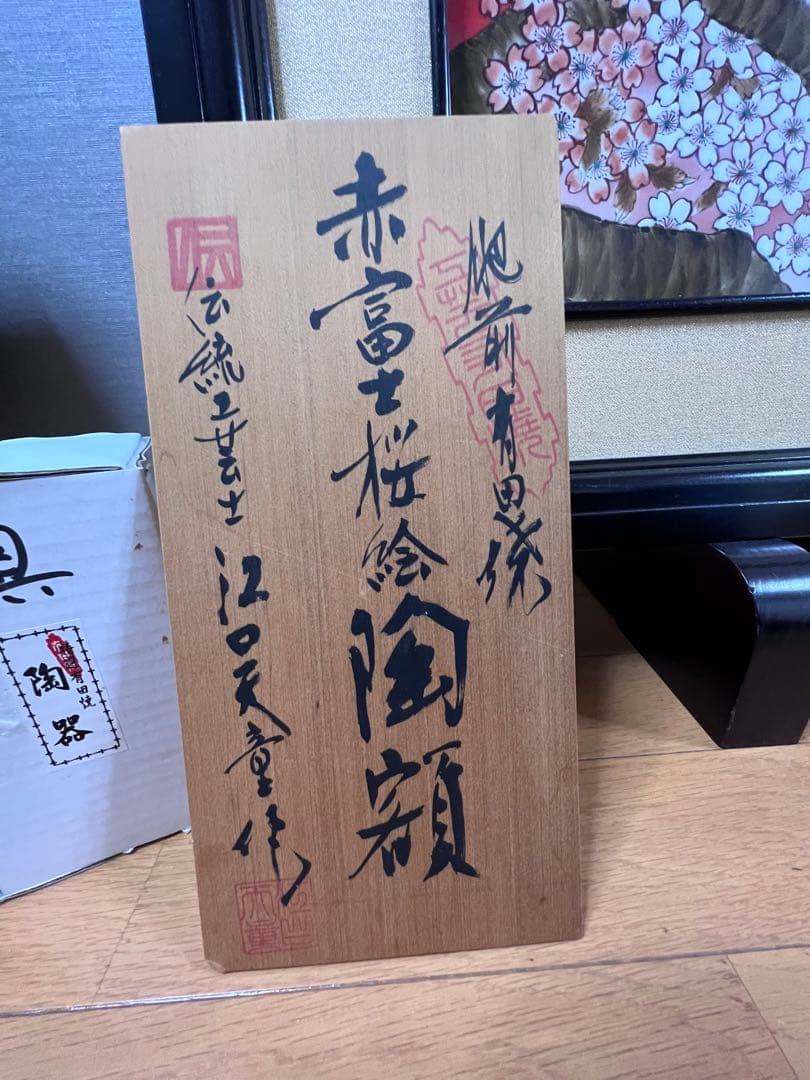 肥前有田焼
赤富士桜絵陶額
伝統工芸士 江口天童作
天童
有田焼
陶器